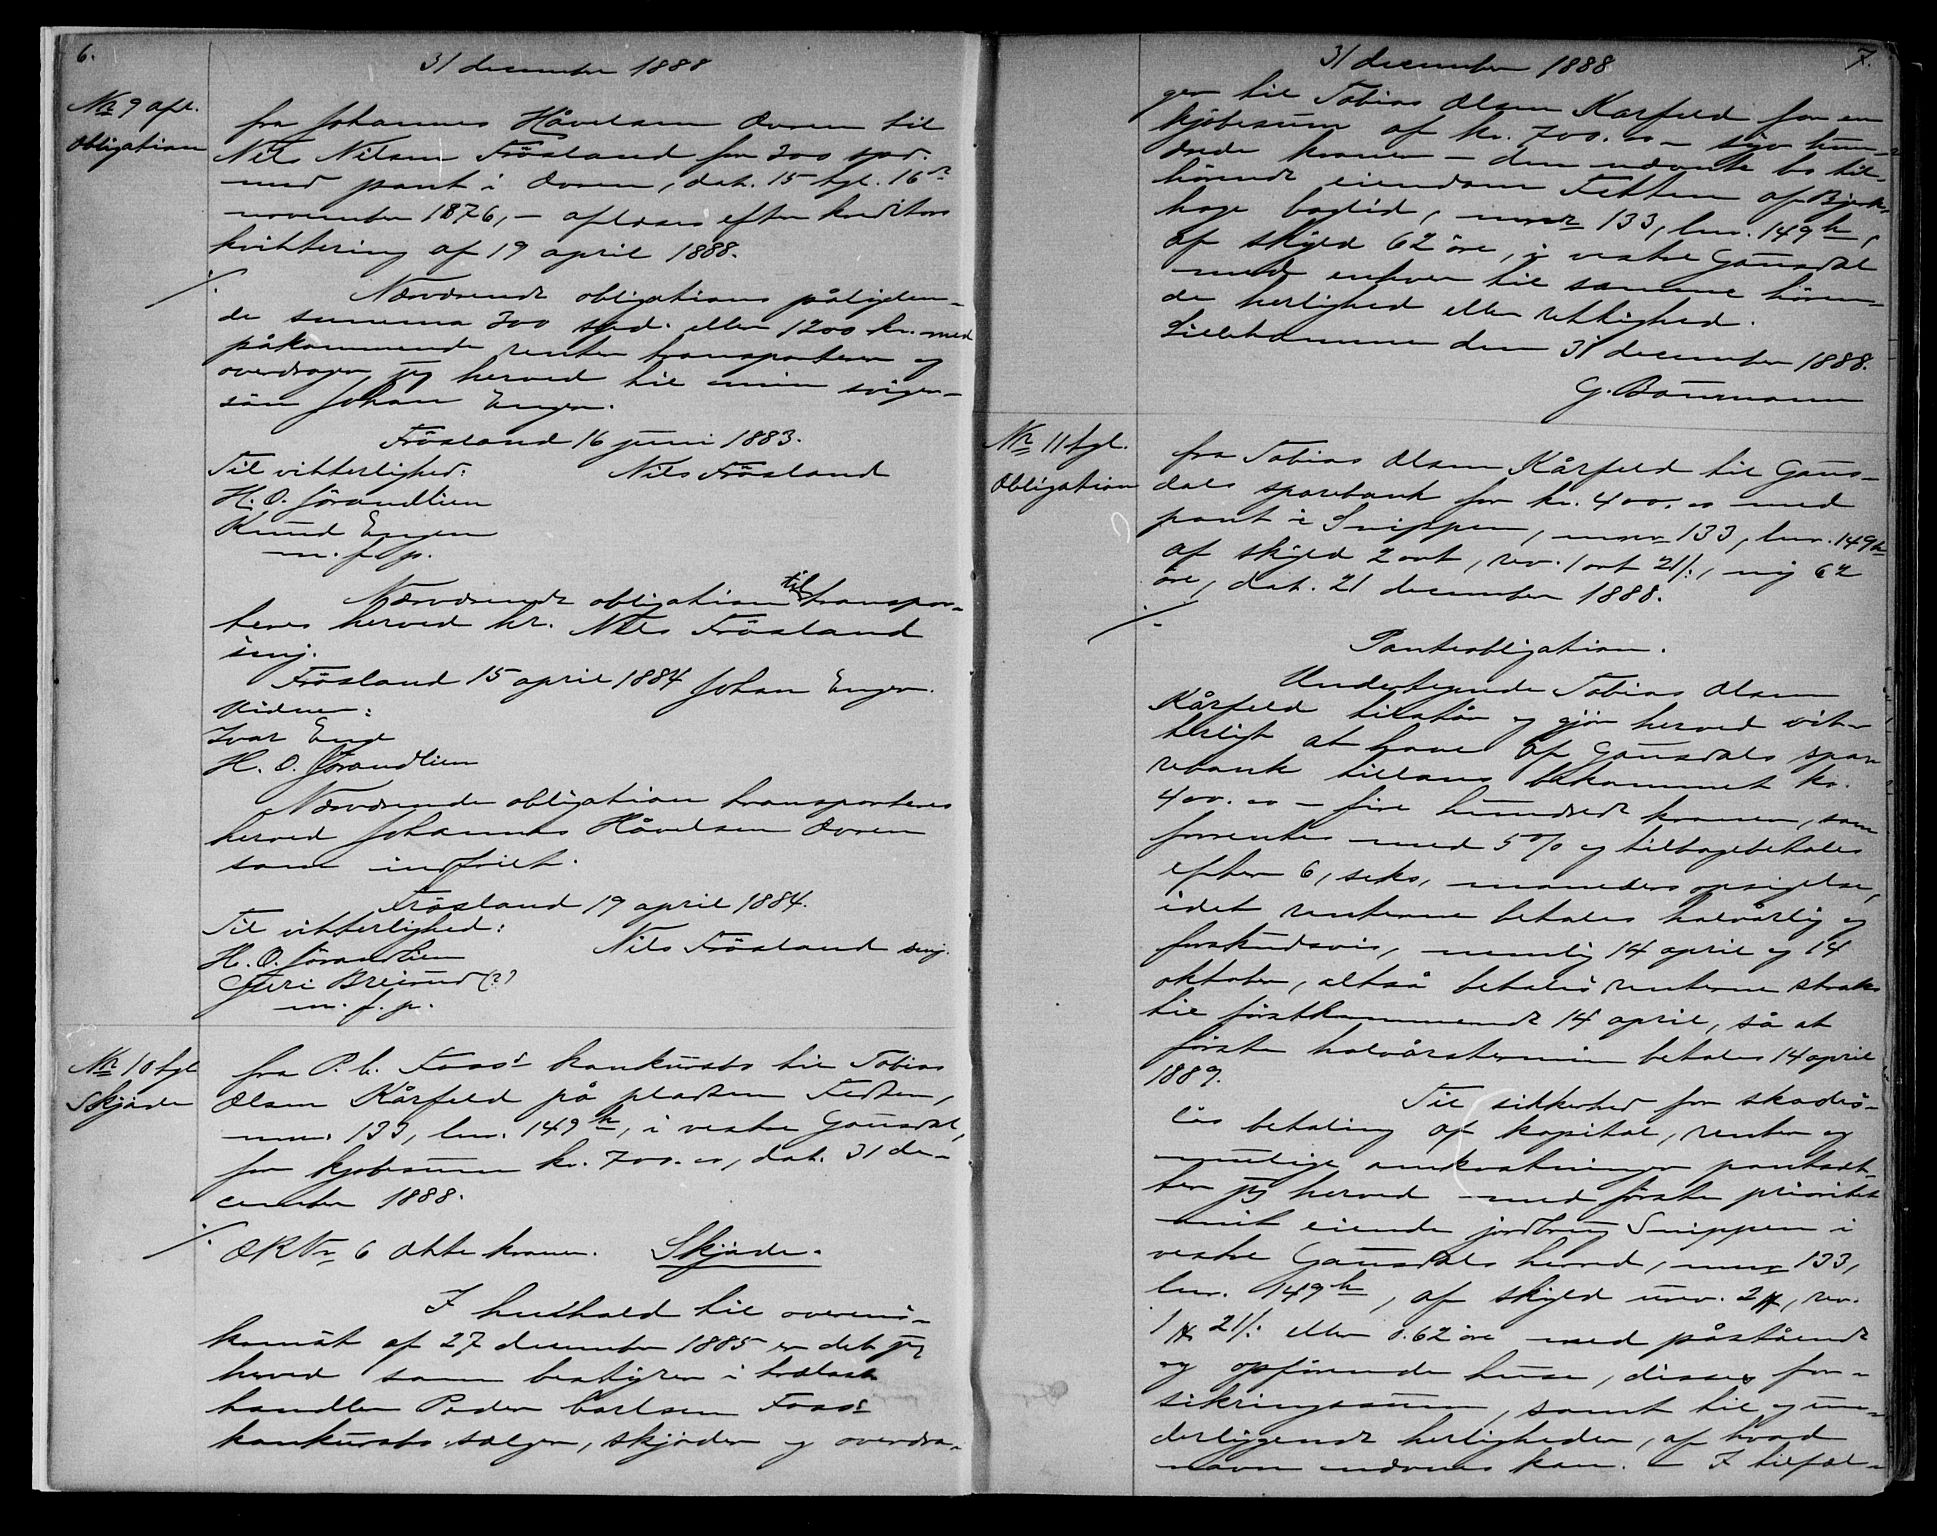 6.
31 december 1888
No 9 afl.
Obligation
fra Johannes Håvelsen Overn til
Nils Nilsen Frösland for 300 spd.
med pant i Overn, dat. 15 tgl. 16de
november 1876, – aflæses efter kreditors
kvittering af 19 april 1888.
./.
Nærværende obligations pålyden-
de summa 300 spd. eller 1200 kr. med
påkommende renter transporterer og
overdrager jeg herved til min sviger-
sön Johan Enger.
Frösland 16 juni 1883.
Til vitterlighed:
Nils Frösland
H. O. Jörandlien
Knud Engen
m. f. p.
Nærværende obligation til transpor-
teres herved hr. Nils Frösland
senj.
Frösland 15 april 1884 Johan Enger.
Vidner:
Ivar Enge
H. O. Jörandlien
Nærværende obligation transporteres
herved Johannes Håvelsen Overn
som indfriet.
Frösland 19 april 1884.
Til vitterlighed:
Nils Frösland senj.
H. O. Jörandlien
Guri Breiund (?)
m. f. p.
No 10 tgl.
Skjøde
fra P. C. Foss's konkursbo til Tobias
Olsen Kårfeld på pladsen Fetten,
mnr. 133, lnr. 149 h, i vestre Gausdal,
for kjøbesum kr. 700.00, dat. 31 de-
cember 1888.
./.
OK No 6 Otte kroner. Skjøde.
I henhold til overens-
komst af 27 december 1885 er det jeg
herved som bestyrer i trælast
handler Peder Carlsen Foss's
konkursbo sælger, skjøder og overdra-
31 december 1888
7.
ger til Tobias Olsen Karfeld for en
kjøbesum af kr. 700.00 – syv hun-
drede kroner – den nævnte bo til-
hörende eiendom Fetten af Bjerk-
hage bøgdid, mnr 133, lnr. 149 h,
af skyld 62 öre, i vestre Gausdal
med enhver til samme hören-
de herlighed eller rettighed.
Lillehammer den 31 december 1888.
G. Baumann
No 11 tgl.
Obligation
fra Tobias Olsen Kårfeld til Gaus-
dals sparebank for kr. 400.00 med
pant i Snippen, mnr. 133, lnr. 149 h
af skyld 2 ort, rev. 1 ort 21 /:, ny 62
öre, dat. 21 december 1888.
./.
Panteobligation.
Undertegnede Tobias Olsen
Kårfeld tilstår og gjör herved vit-
terligt at have af Gausdals spa-
rebank tillans bekommet kr.
400.00 – fire hundrede kroner, som
forrentes med 5 % og tilbagebetales
efter 6, seks, måneders opsigelse,
idet renterne betales halvårlig og
forskudsvis, nemlig 14 april og 14
oktober, altså betales renterne straks
til förstkommende 14 april, så at
förste halvårstermin betales 14 april
1889.
Til sikkerhed for skades-
lös betaling af kapital, renter og
mulige omkostninger pantsæt-
ter jeg herved med förste prioritet
mit eiende jordbrug Snippen i
vestre Gausdals herred, mnr 133,
lnr. 149 h, af skyld urev. 2 #, rev.
1 # 21 /: eller 0.62 öre med påstående
og opförende huse, disses for-
sikringssum, samt til og un-
derliggende herligheder, af hvad
navn nævnes kan. – I tilfæl-